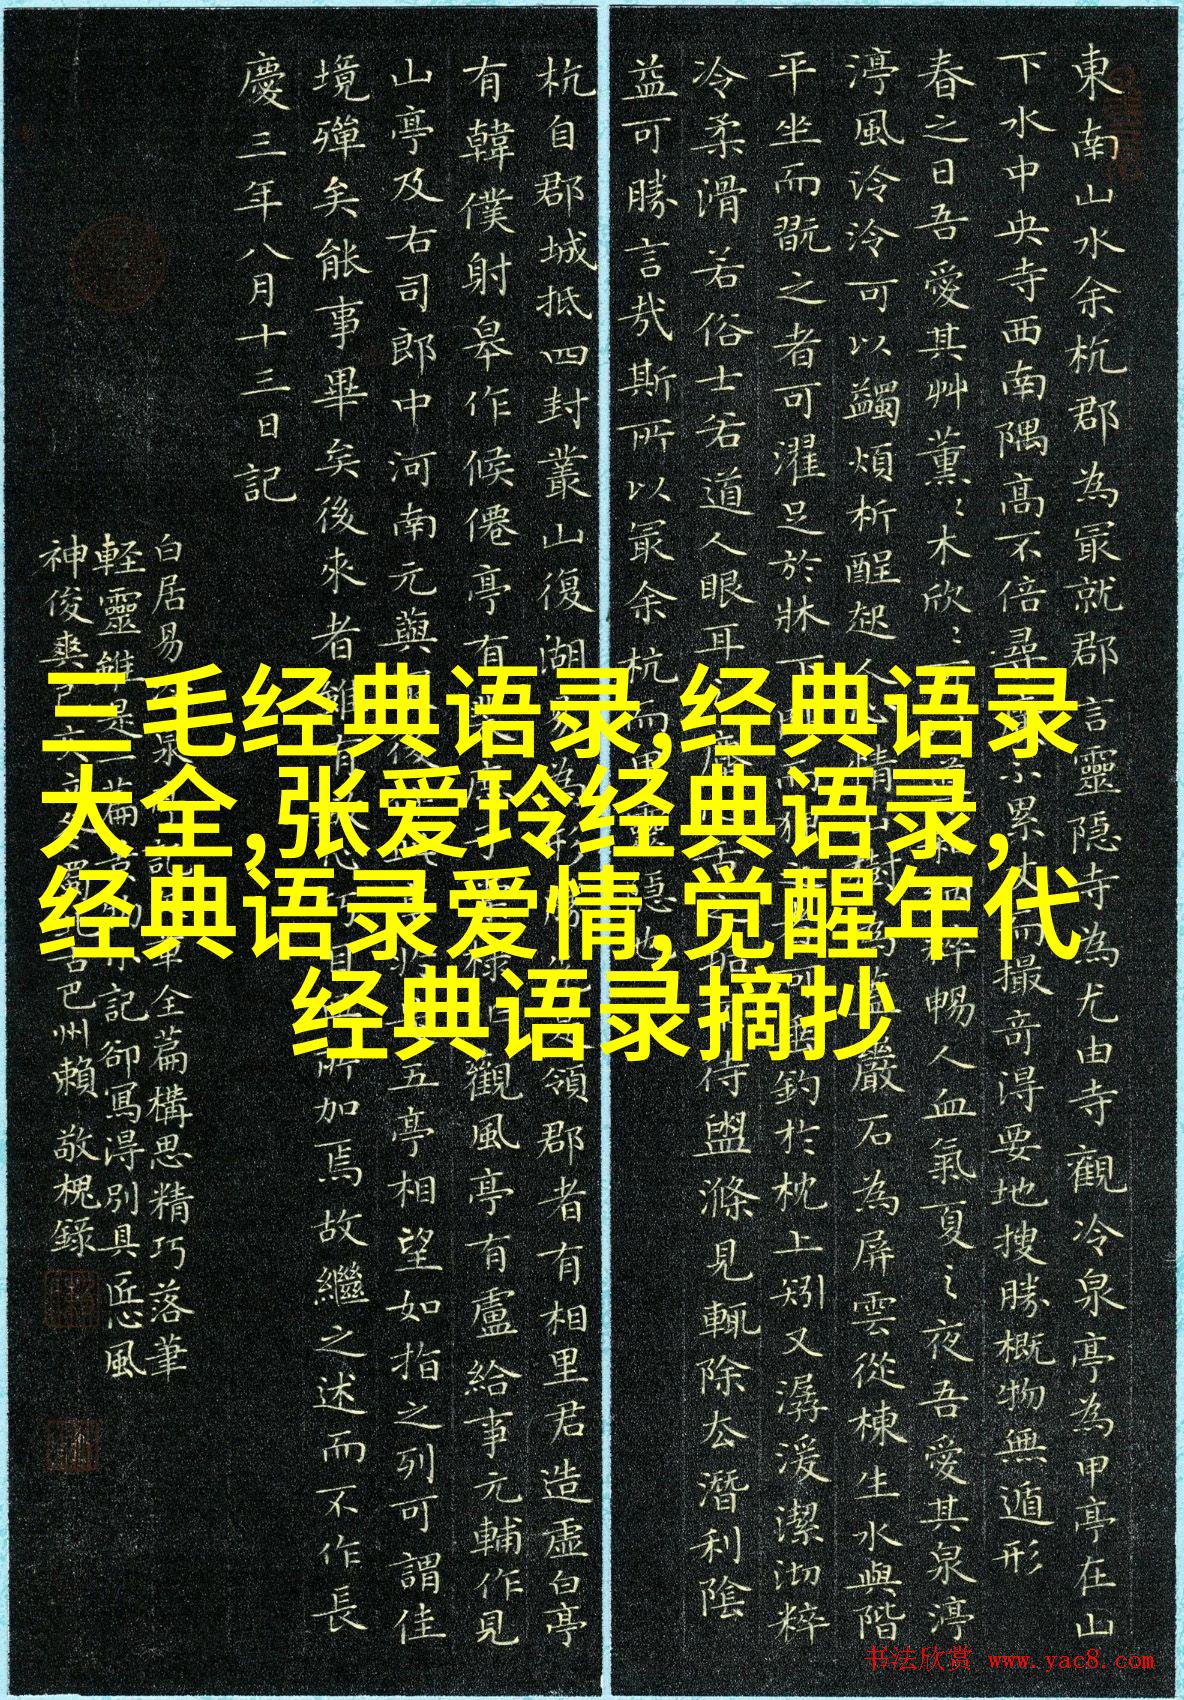 東南山水余杭郡為冣就郡言靈隐寺為尤由寺觀冷泉亭為甲亭在山
下水中央寺西南隅高不倍尋
累
而撮竒得要地搜勝概物無遁形
春之日吾愛其艸薰〻木欣〻
暢人血氣夏之夜吾愛其泉渟
渟風泠泠可以蠲煩析酲起人
情
巖石為屏雲從棟生水與階
平坐而翫之者可濯足於牀下
釣於枕上矧又潺湲潔沏粹
冷柔滑若俗士若道人眼耳
待盥滌見輒除去潛利陰
益可勝言哉斯所以冣余杭而
隱也
杭自郡城抵四封叢山復湖易為形
領郡者有相里君造虛白亭
有韓僕射皋作候僊亭有
觀風亭有盧給事元輔作見
山亭及右司郎中河南元藇
後
五亭相望如指之列可謂佳
境殫矣能事畢矣後來者雖有
所加焉故繼之述而不作長
慶三年八月十三日記
白居易
泉
記
全篇構思精巧落筆
軽靈雖是一篇
記卻寫得別具匠心風
神俊爽
巴州賴敬槐錄
三毛经典语录,经典语录
大全,张爱玲经典语录,
经典语录爱情,觉醒年代
经典语录摘抄
书法欣赏 www.yac8.com